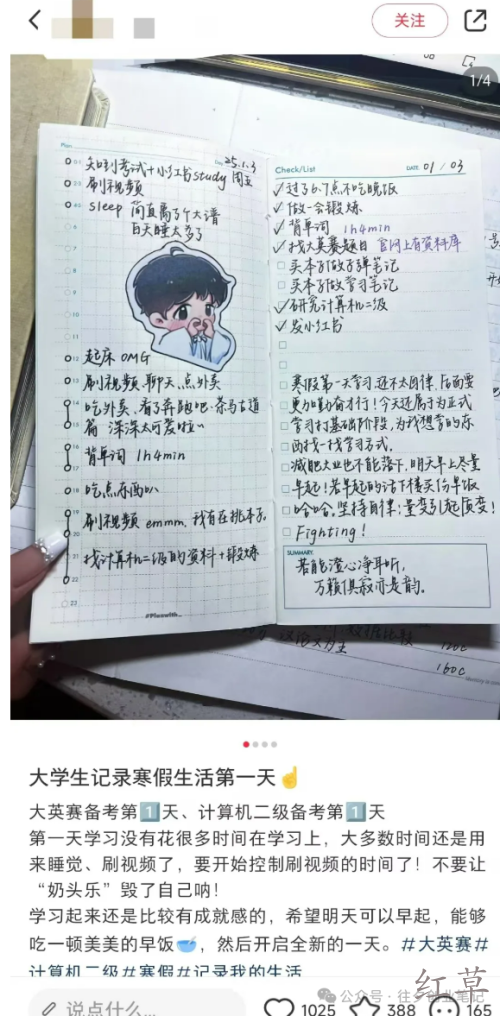 关注
1/4
Plan
Day 25.1.3
周五
知到考试+小红书study
刷视频
sleep 简直离了个大谱
白天睡太多了
起床 OMG
刷视频、聊天、点外卖
吃外卖，看了奔跑吧·茶马古道
篇 深深太可爱啦~
背单词 1h4min
吃点东西叭
刷视频 emmm，我有在挑本子。
找计算机二级的资料+锻炼
12
13
14
15
16
17
18
19
20
21
22
23
Check/List
DATE 01/03
过了6.7点不吃晚饭
做一会锻炼
背单词 1h4min
找大英赛题目 官网上有资料库
买本子做子弹笔记
买本子做学习笔记
研究计算机二级
发小红书
寒假第一天学习，还不太自律，后面要
更加勤奋才行！今天还属于为正式
学习打基础阶段，为我想学的东
西找一找学习方式。
减肥大业也不能落下，明天早上尽量
早起！若早起的话下楼买份早饭
哈哈，坚持自律，量变引起质变！
Fighting！
SUMMARY
若能澄心净耳听，
万籁俱寂亦是韵。
1200
1600
大学生记录寒假生活第一天☝
大英赛备考第1️⃣天、计算机二级备考第1️⃣天
第一天学习没有花很多时间在学习上，大多数时间还是用
来睡觉、刷视频了，要开始控制刷视频的时间了！不要让
“奶头乐”毁了自己呐！
学习起来还是比较有成就感的，希望明天可以早起，能够
吃一顿美美的早饭🥣，然后开启全新的一天。#大英赛#
计算机二级#寒假#记录我的生活
说点什么...
1025
388
165
红草